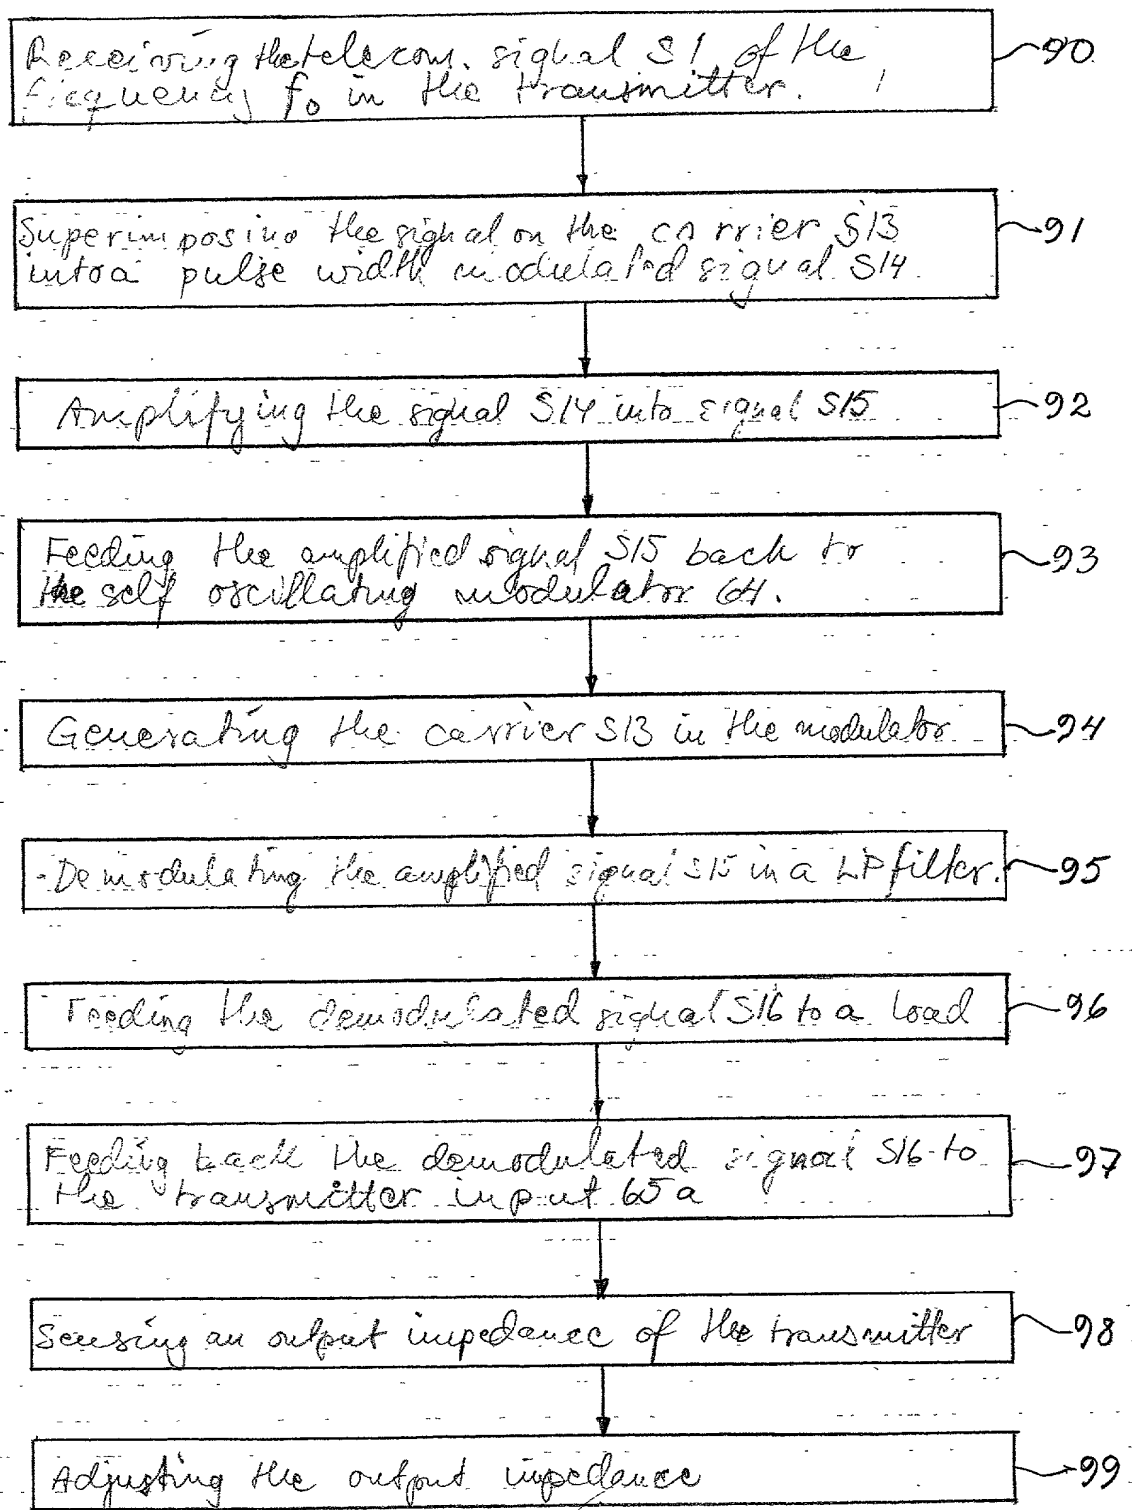 Receiving the telecom. signal S1 of the
frequency f₀ in the transmitter.
90
Superimposing the signal on the carrier S13
into a pulse width modulated signal S14.
91
Amplifying the signal S14 into signal S15
92
Feeding the amplified signal S15 back to
the self oscillating modulator 64.
93
Generating the carrier S13 in the modulator
94
Demodulating the amplified signal S15 in a LP filter.
95
Feeding the demodulated signal S16 to a load
96
Feeding back the demodulated signal S16 to
the transmitter input 65a
97
Sensing an output impedance of the transmitter
98
Adjusting the output impedance
99